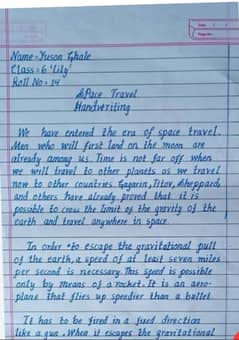 Name = Yuson Ghale
Class = 6 'Lily'
Roll No = 14
Space Travel
Handwriting
We have entered the era of space travel.
Men who will first land on the moon are
already among us. Time is not far off when
we will travel to other planets as we travel
now to other countries. Gagarin, Titov, Sheppard,
and others have already proved that it is
possible to cross the limit of the gravity of the
earth and travel anywhere in space.
In order to escape the gravitational pull
of the earth, a speed of at least seven miles
per second is necessary. This speed is possible
only by means of a rocket. It is an aero-
plane that flies up speedier than a bullet.
It has to be fired in a fixed direction
like a gun. When it escapes the gravitational